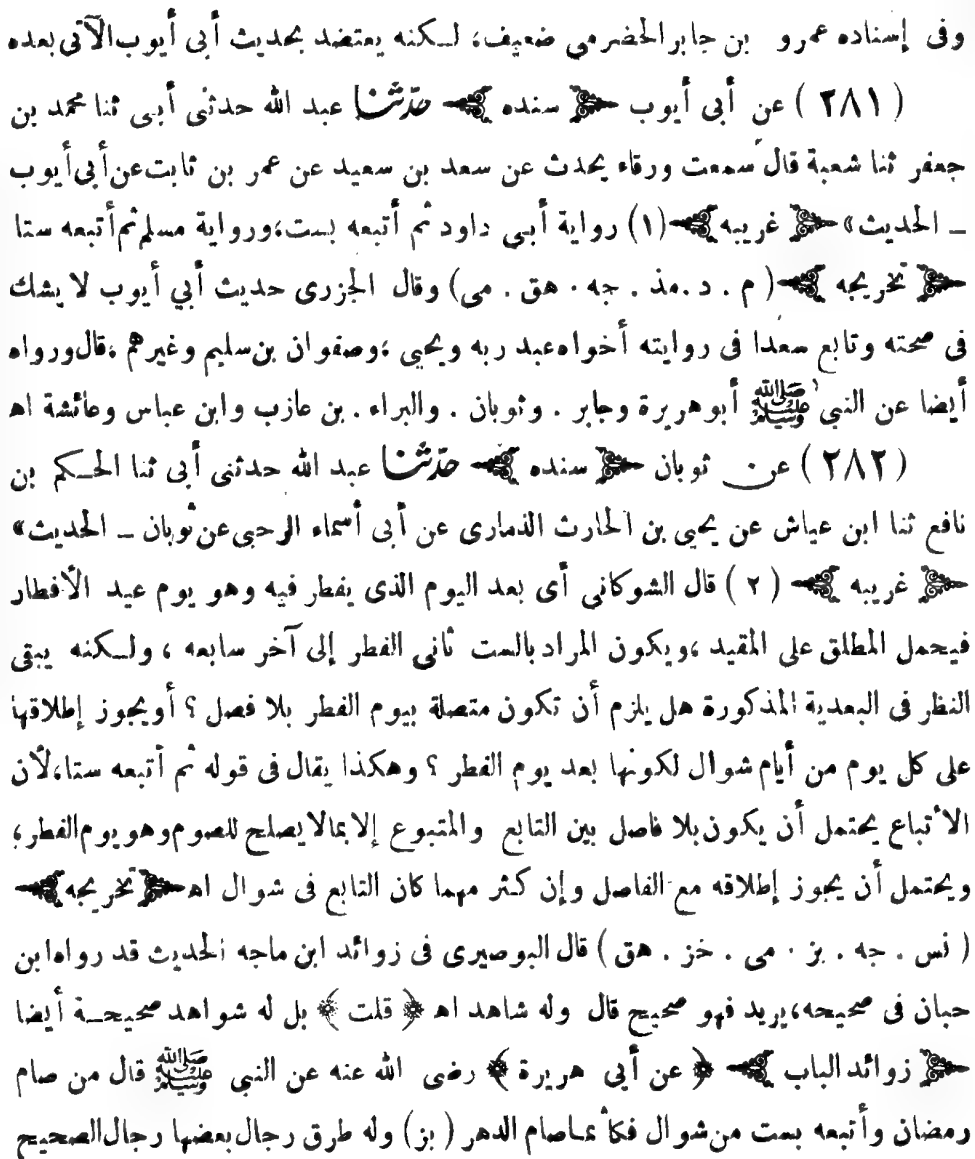 وفى إسناده عمرو بن جابر الحضرمي ضعيف، لكنه يعتضد بحديث أبى أيوب الآتى بعده
(٢٨١) عن أبى أيوب ﴿ سنده ﴾ حدّثنا عبد الله حدثنى أبى ثنا محمد بن
جعفر ثنا شعبة قال سمعت ورقاء يحدث عن سعد بن سعيد عن عمر بن ثابت عن أبى أيوب
ــ الحديث» ﴿ غريبه ﴾ (١) رواية أبى داود ثم أتبعه بست، ورواية مسلم ثم أتبعه ستا
﴿ تخريجه ﴾ (م . د . مذ . جه . هق . مى) وقال الجزرى حديث أبي أيوب لا يشك
فى صحته وتابع سعدا فى روايته أخواه عبد ربه ويحيى، وصفوان بن سليم وغيرهم، قال ورواه
أيضا عن النبى ﷺ أبو هريرة وجابر . وثوبان . والبراء . بن عازب وابن عباس وعائشة اھ
(٢٨٢) عن ثوبان ﴿ سنده ﴾ حدّثنا عبد الله حدثنى أبى ثنا الحكم بن
نافع ثنا ابن عياش عن يحيى بن الحارث الذمارى عن أبى أسماء الرحبى عن ثوبان ــ الحديث»
﴿ غريبه ﴾ (٢) قال الشوكانى أى بعد اليوم الذى يفطر فيه وهو يوم عيد الأفطار
فيحمل المطلق على المقيد، ويكون المراد بالست ثانى الفطر إلى آخر سابعه، ولكنه يبقى
النظر فى البعدية المذكورة هل يلزم أن تكون متصلة بيوم الفطر بلا فصل؟ أو يجوز إطلاقها
على كل يوم من أيام شوال لكونها بعد يوم الفطر؟ وهكذا يقال فى قوله ثم أتبعه ستا، لأن
الأتباع يحتمل أن يكون بلا فاصل بين التابع والمتبوع إلا بما لا يصلح للصوم وهو يوم الفطر،
ويحتمل أن يجوز إطلاقه مع الفاصل وإن كثر مهما كان التابع فى شوال اھ ﴿ تخريجه ﴾
(نس . جه . بز . مى . خز . هق) قال البوصيرى فى زوائد ابن ماجه الحديث قد رواه ابن
حبان فى صحيحه، يريد فهو صحيح قال وله شاهد اھ ﴿ قلت ﴾ بل له شواهد صحيحة أيضا
﴿ زوائد الباب ﴾ ﴿ عن أبى هريرة ﴾ رضى الله عنه عن النبى ﷺ قال من صام
رمضان وأتبعه بست من شوال فكأنما صام الدهر (بز) وله طرق رجال بعضها رجال الصحيح